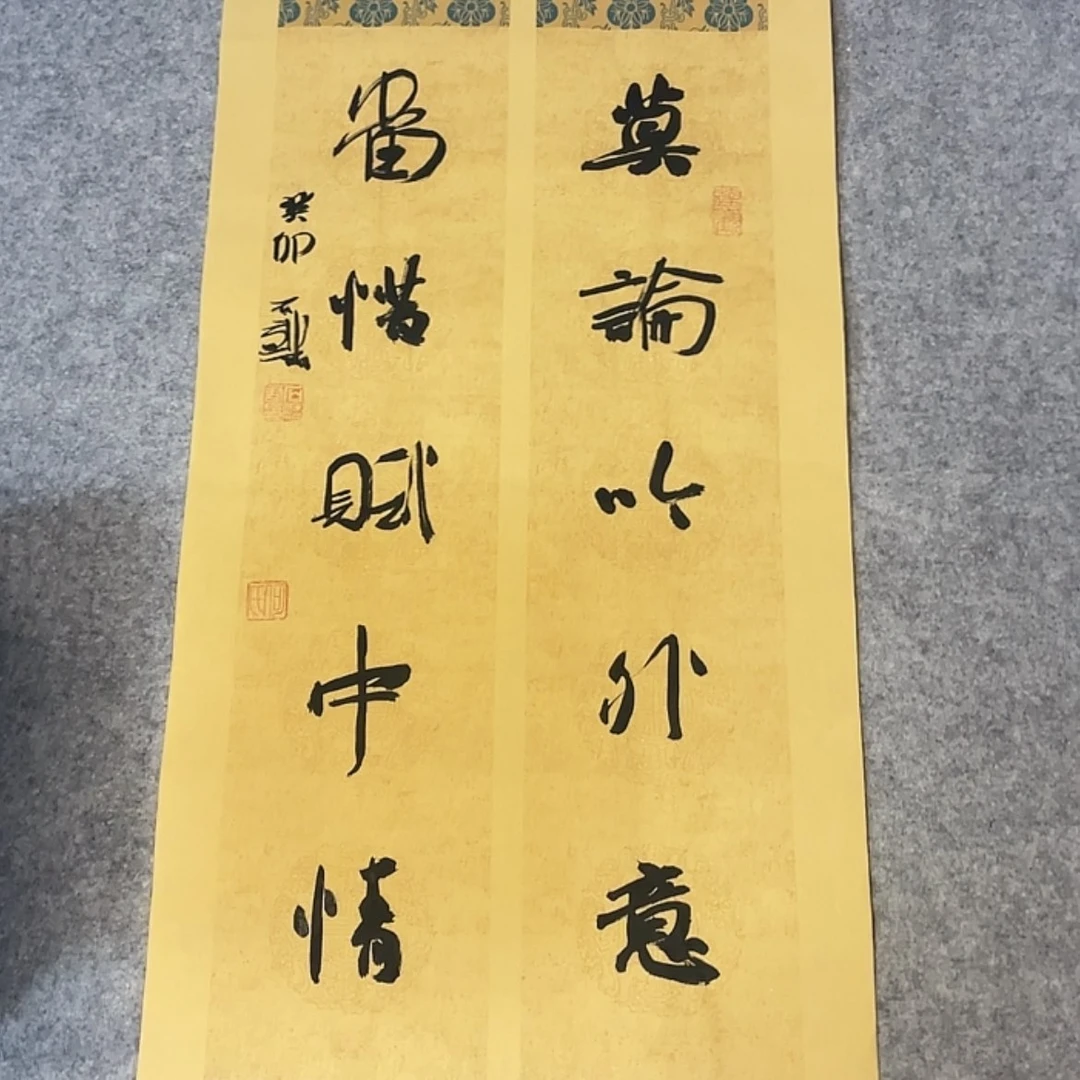 莫論吟外意
當惜賦中情
癸卯